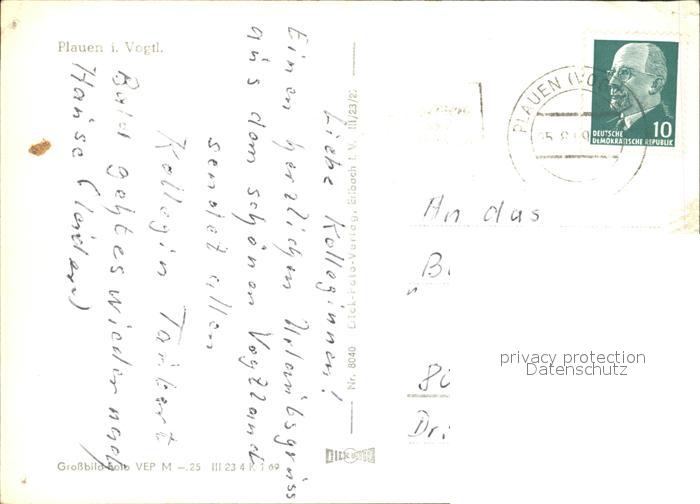 Plauen i. Vogtl.
Liebe Kolleginnen!
Einen herzlichen Urlaubsgruss
aus dem schönen Vogtland
sendet allen
Kollegin
Bald geht es wieder nach
Hause (leider)
Großbild-Foto VEP M -.25 III 23 4 K 1 69
Nr. 8040 Dick-Foto-Verlag, Erlbach i. V. III/23/2
DICK
PLAUEN (VOGTL
DEUTSCHE
DEMOKRATISCHE REPUBLIK
10
An das
B
80
Dr
privacy protection
Datenschutz